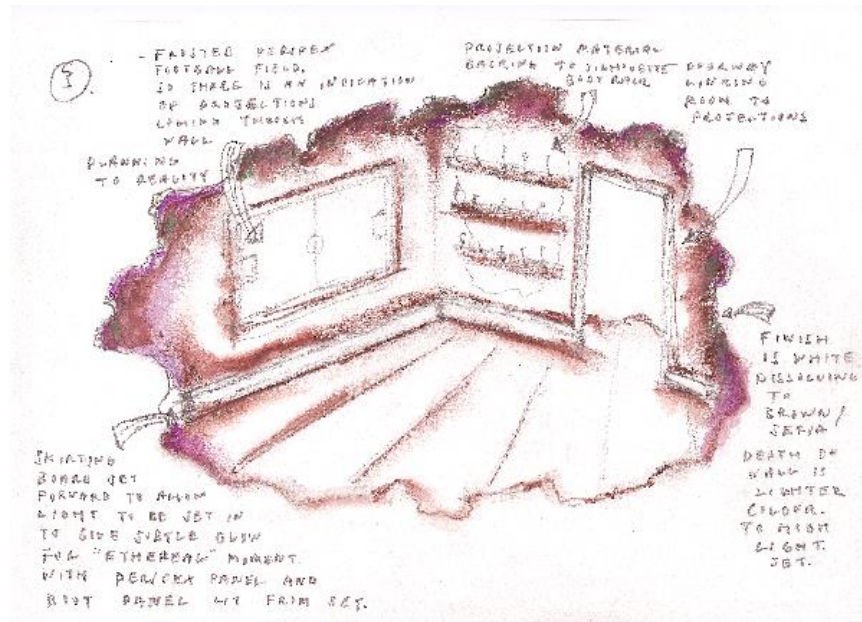 3.
- FROSTED PERSPEX
FOOTBALL FIELD.
SO THERE IS AN INDICATION
OF PROJECTIONS
COMING THROUGH
WALL
PLANNING
TO REALITY
PROJECTION MATERIAL
BACKING TO SILHOUETTE
BOOT ROOM
DOORWAY
LINKING
ROOM TO
PROJECTIONS
FINISH
IS WHITE
DISSOLVING
TO
BROWN/
SEPIA
DEPTH OF
WALL IS
LIGHTER
COLOUR.
TO HIGH
LIGHT.
SET.
SKIRTING
BOARD SET
FORWARD TO ALLOW
LIGHT TO BE SET IN
TO GIVE SUBTLE GLOW
FOR "ETHEREAL" MOMENT.
WITH PERSPEX PANEL AND
BOOT PANEL LIT FROM SET.